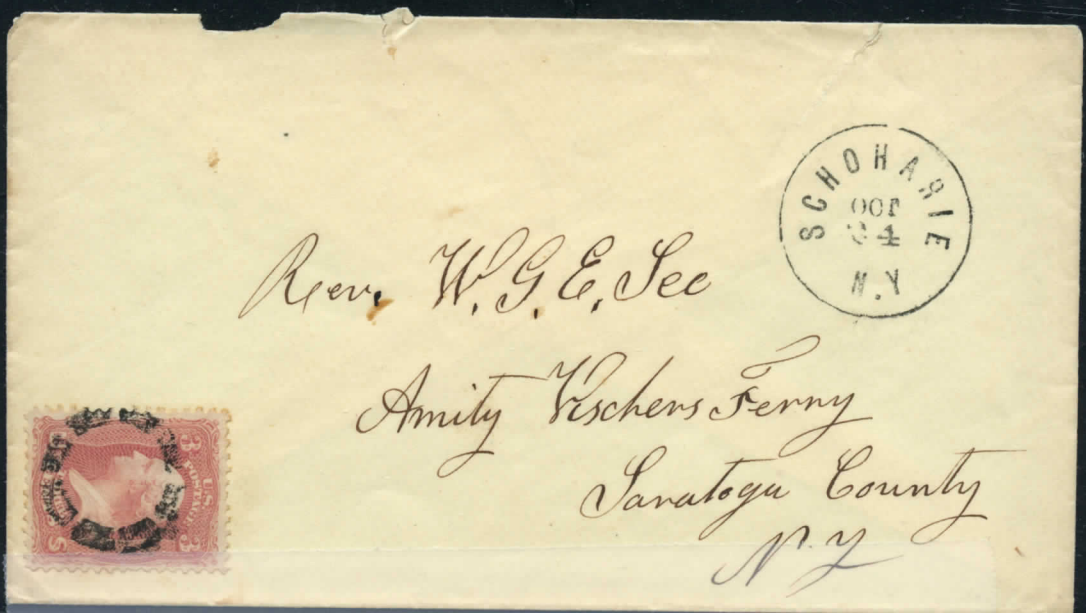 SCHOHARIE
OCT
24
N.Y
Rev. W. G. E. See
Amity Vischers Ferry
Saratoga County
N.Y
3 U.S. POSTAGE 3